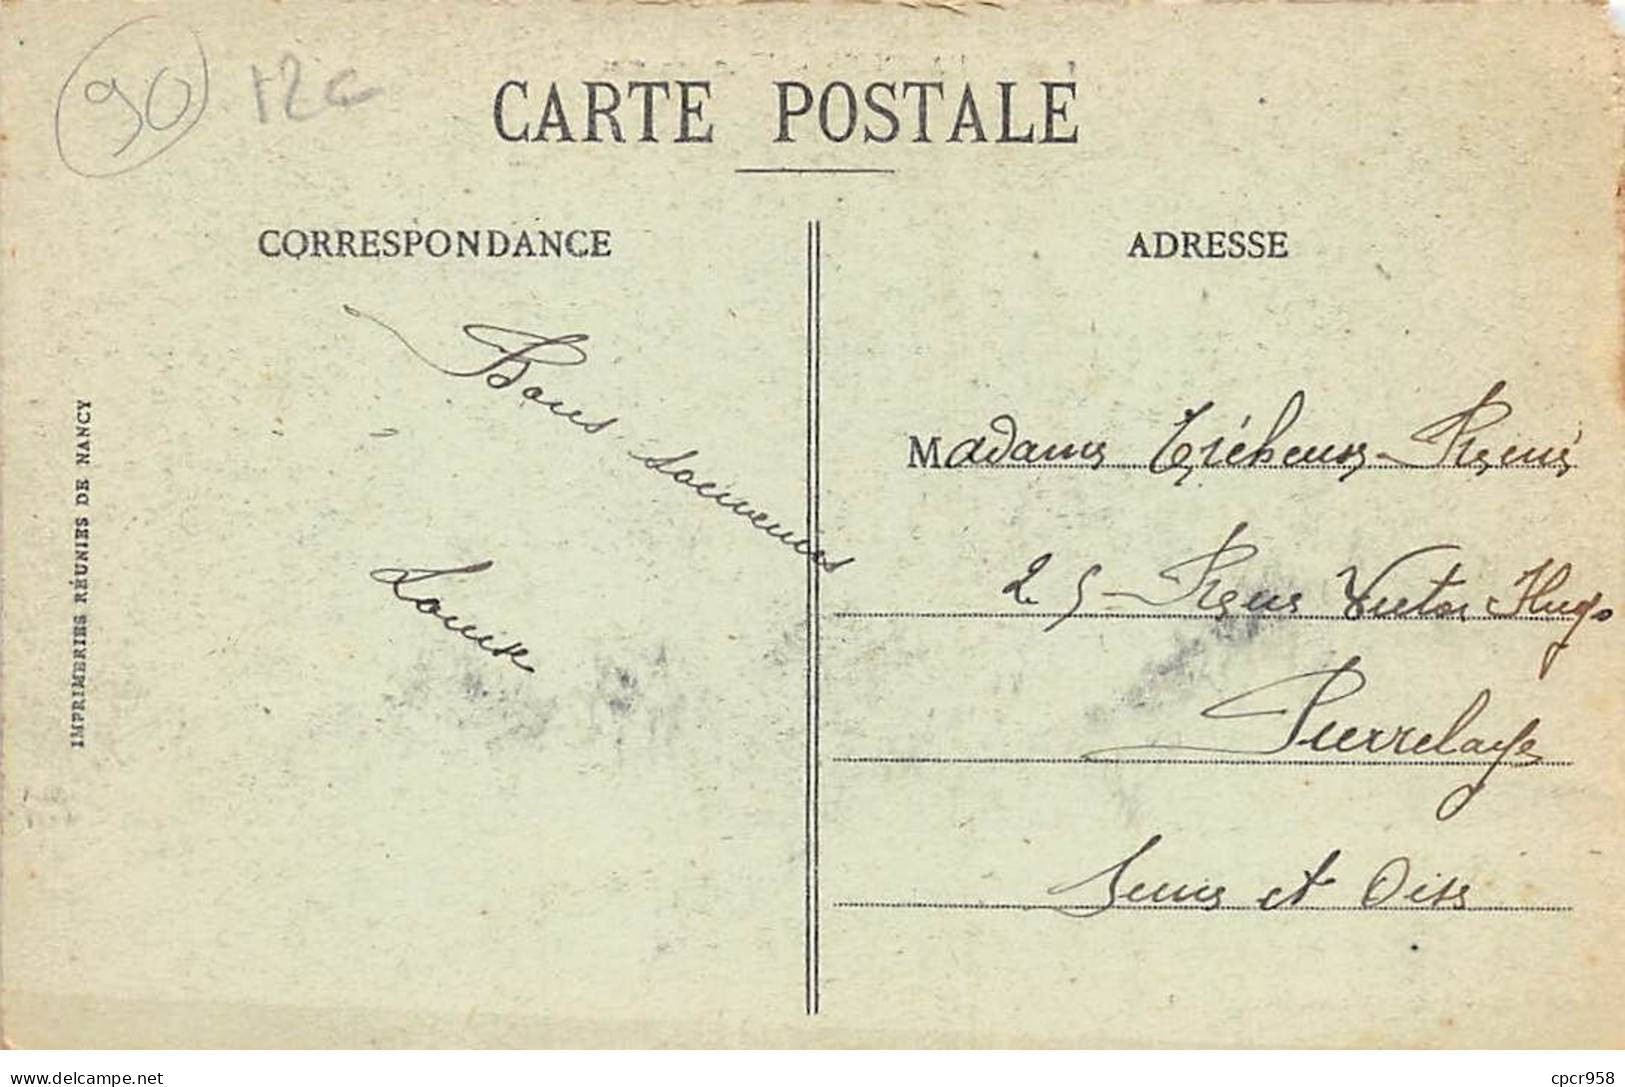 90 12c
CARTE POSTALE
CORRESPONDANCE
ADRESSE
Bons souvenirs
Louise
Madame Tréheux René
25 Rue Victor Hugo
Pierrelaye
Seine et Oise
IMPRIMERIES RÉUNIES DE NANCY
delcampe.net
cpcr958